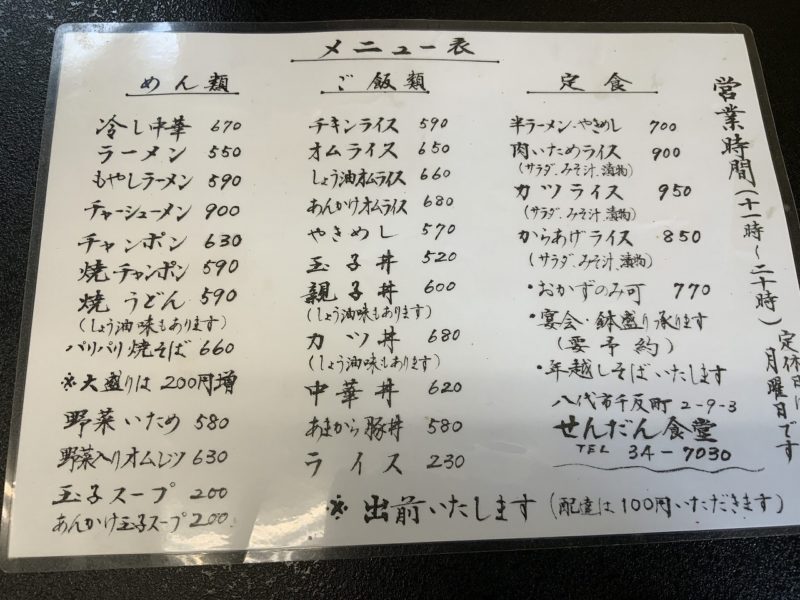 メニュー表
めん類
冷し中華 670
ラーメン 550
もやしラーメン 590
チャーシューメン 900
チャンポン 630
焼チャンポン 590
焼うどん 590
(しょう油味もあります)
パリパリ焼そば 660
※大盛りは 200円増
野菜いため 580
野菜入りオムレツ 630
玉子スープ 200
あんかけ玉子スープ 200
ご飯類
チキンライス 590
オムライス 650
しょう油オムライス 660
あんかけオムライス 680
やきめし 570
玉子丼 520
親子丼 600
(しょう油味もあります)
カツ丼 680
(しょう油味もあります)
中華丼 620
あまから豚丼 580
ライス 230
定食
半ラーメン・やきめし 700
肉いためライス 900
(サラダ、みそ汁、漬物)
カツライス 950
(サラダ、みそ汁、漬物)
からあげライス 850
(サラダ、みそ汁、漬物)
・おかずのみ可 770
・宴会・鉢盛り承ります
(要予約)
・年越しそばいたします
八代市千反町 2-9-3
せんだん食堂
TEL 34-7030
※出前いたします (配達は100円いただきます)
営業時間(十一時~二十時)
定休日は
月曜日です